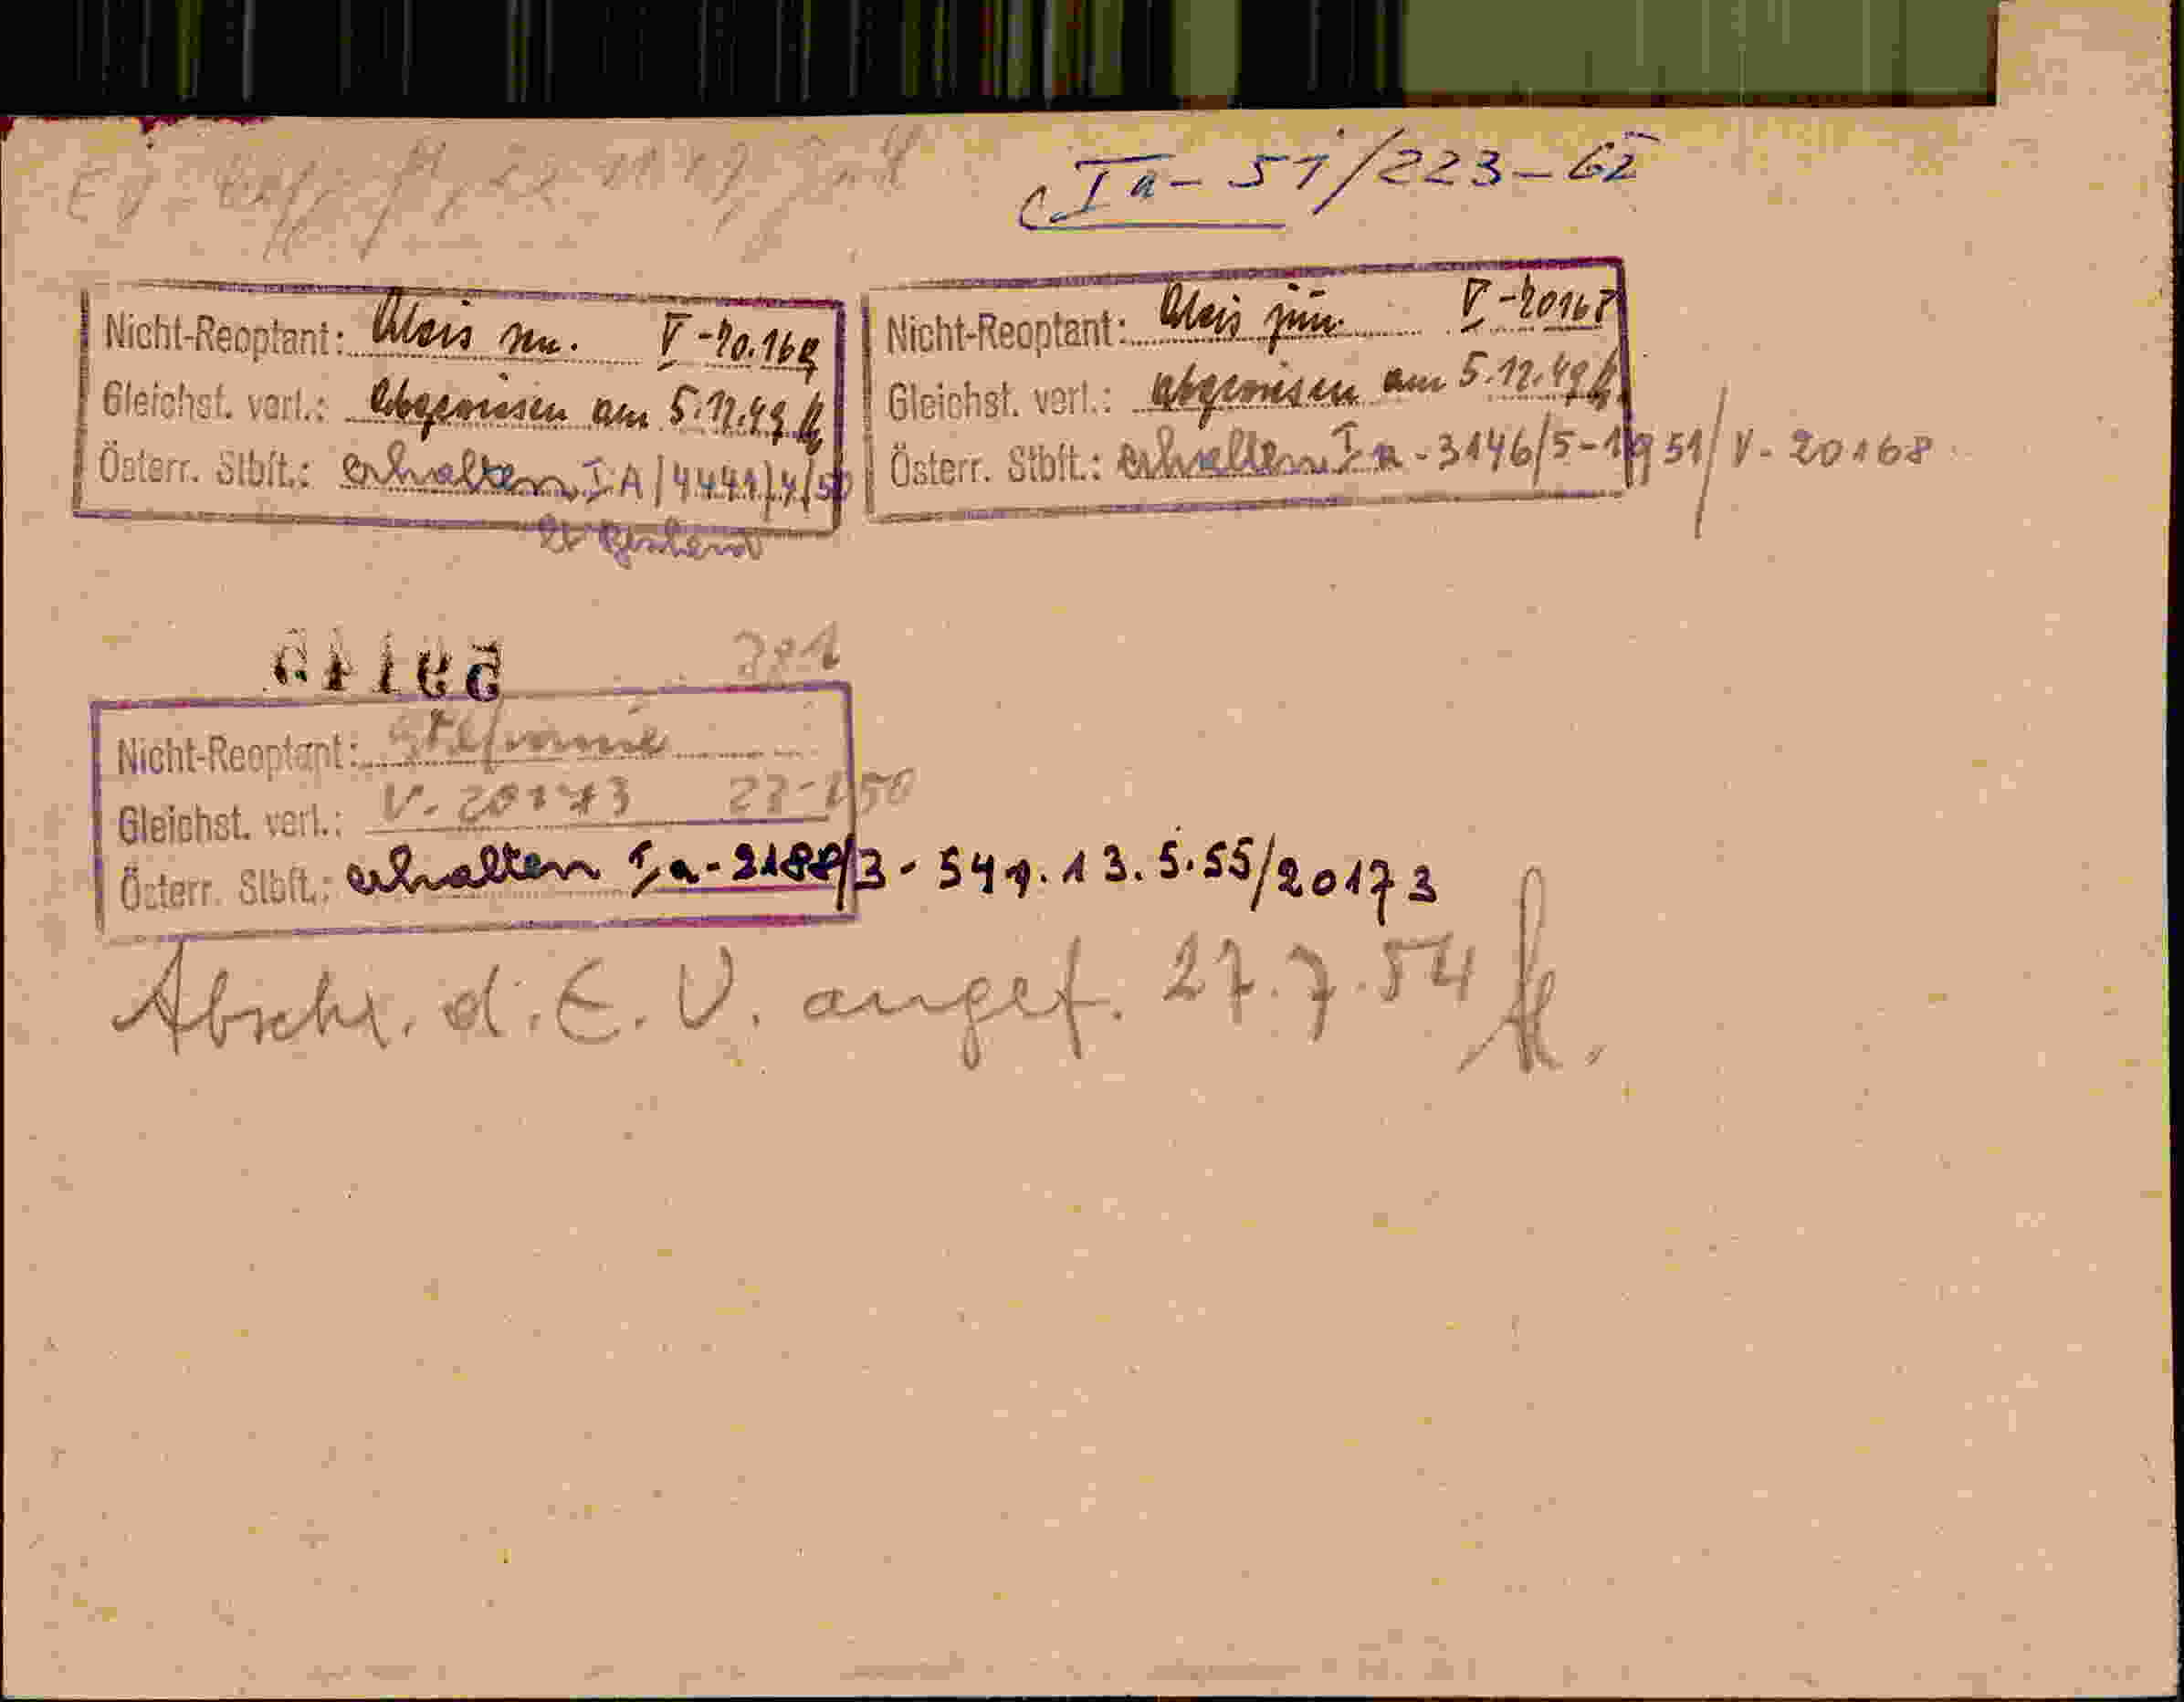 Ia - 51/223-62
Nicht-Reoptant: Alois sen. V-20.169
Gleichst. verl.: abgewiesen am 5.12.49
Österr. Stbft.: erhalten IA/4441/4/50
Nicht-Reoptant: Alois jun. V-20168
Gleichst. verl.: abgewiesen am 5.12.49
Österr. Stbft.: erhalten Ia-3146/5-1951/V-20168
Nicht-Reoptant: Stefanie
Gleichst. verl.: V-20173
Österr. Stbft.: erhalten Ia-2188/3-54 v. 13.5.55/20173
Abschr. d. E.V. angef. 27.7.54